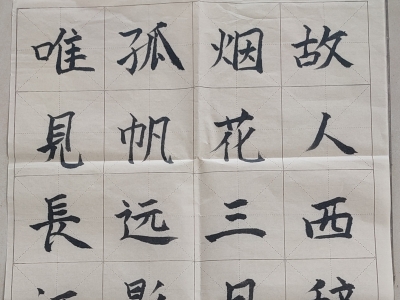 故人西辞
烟花三月
孤帆远影
唯見長江